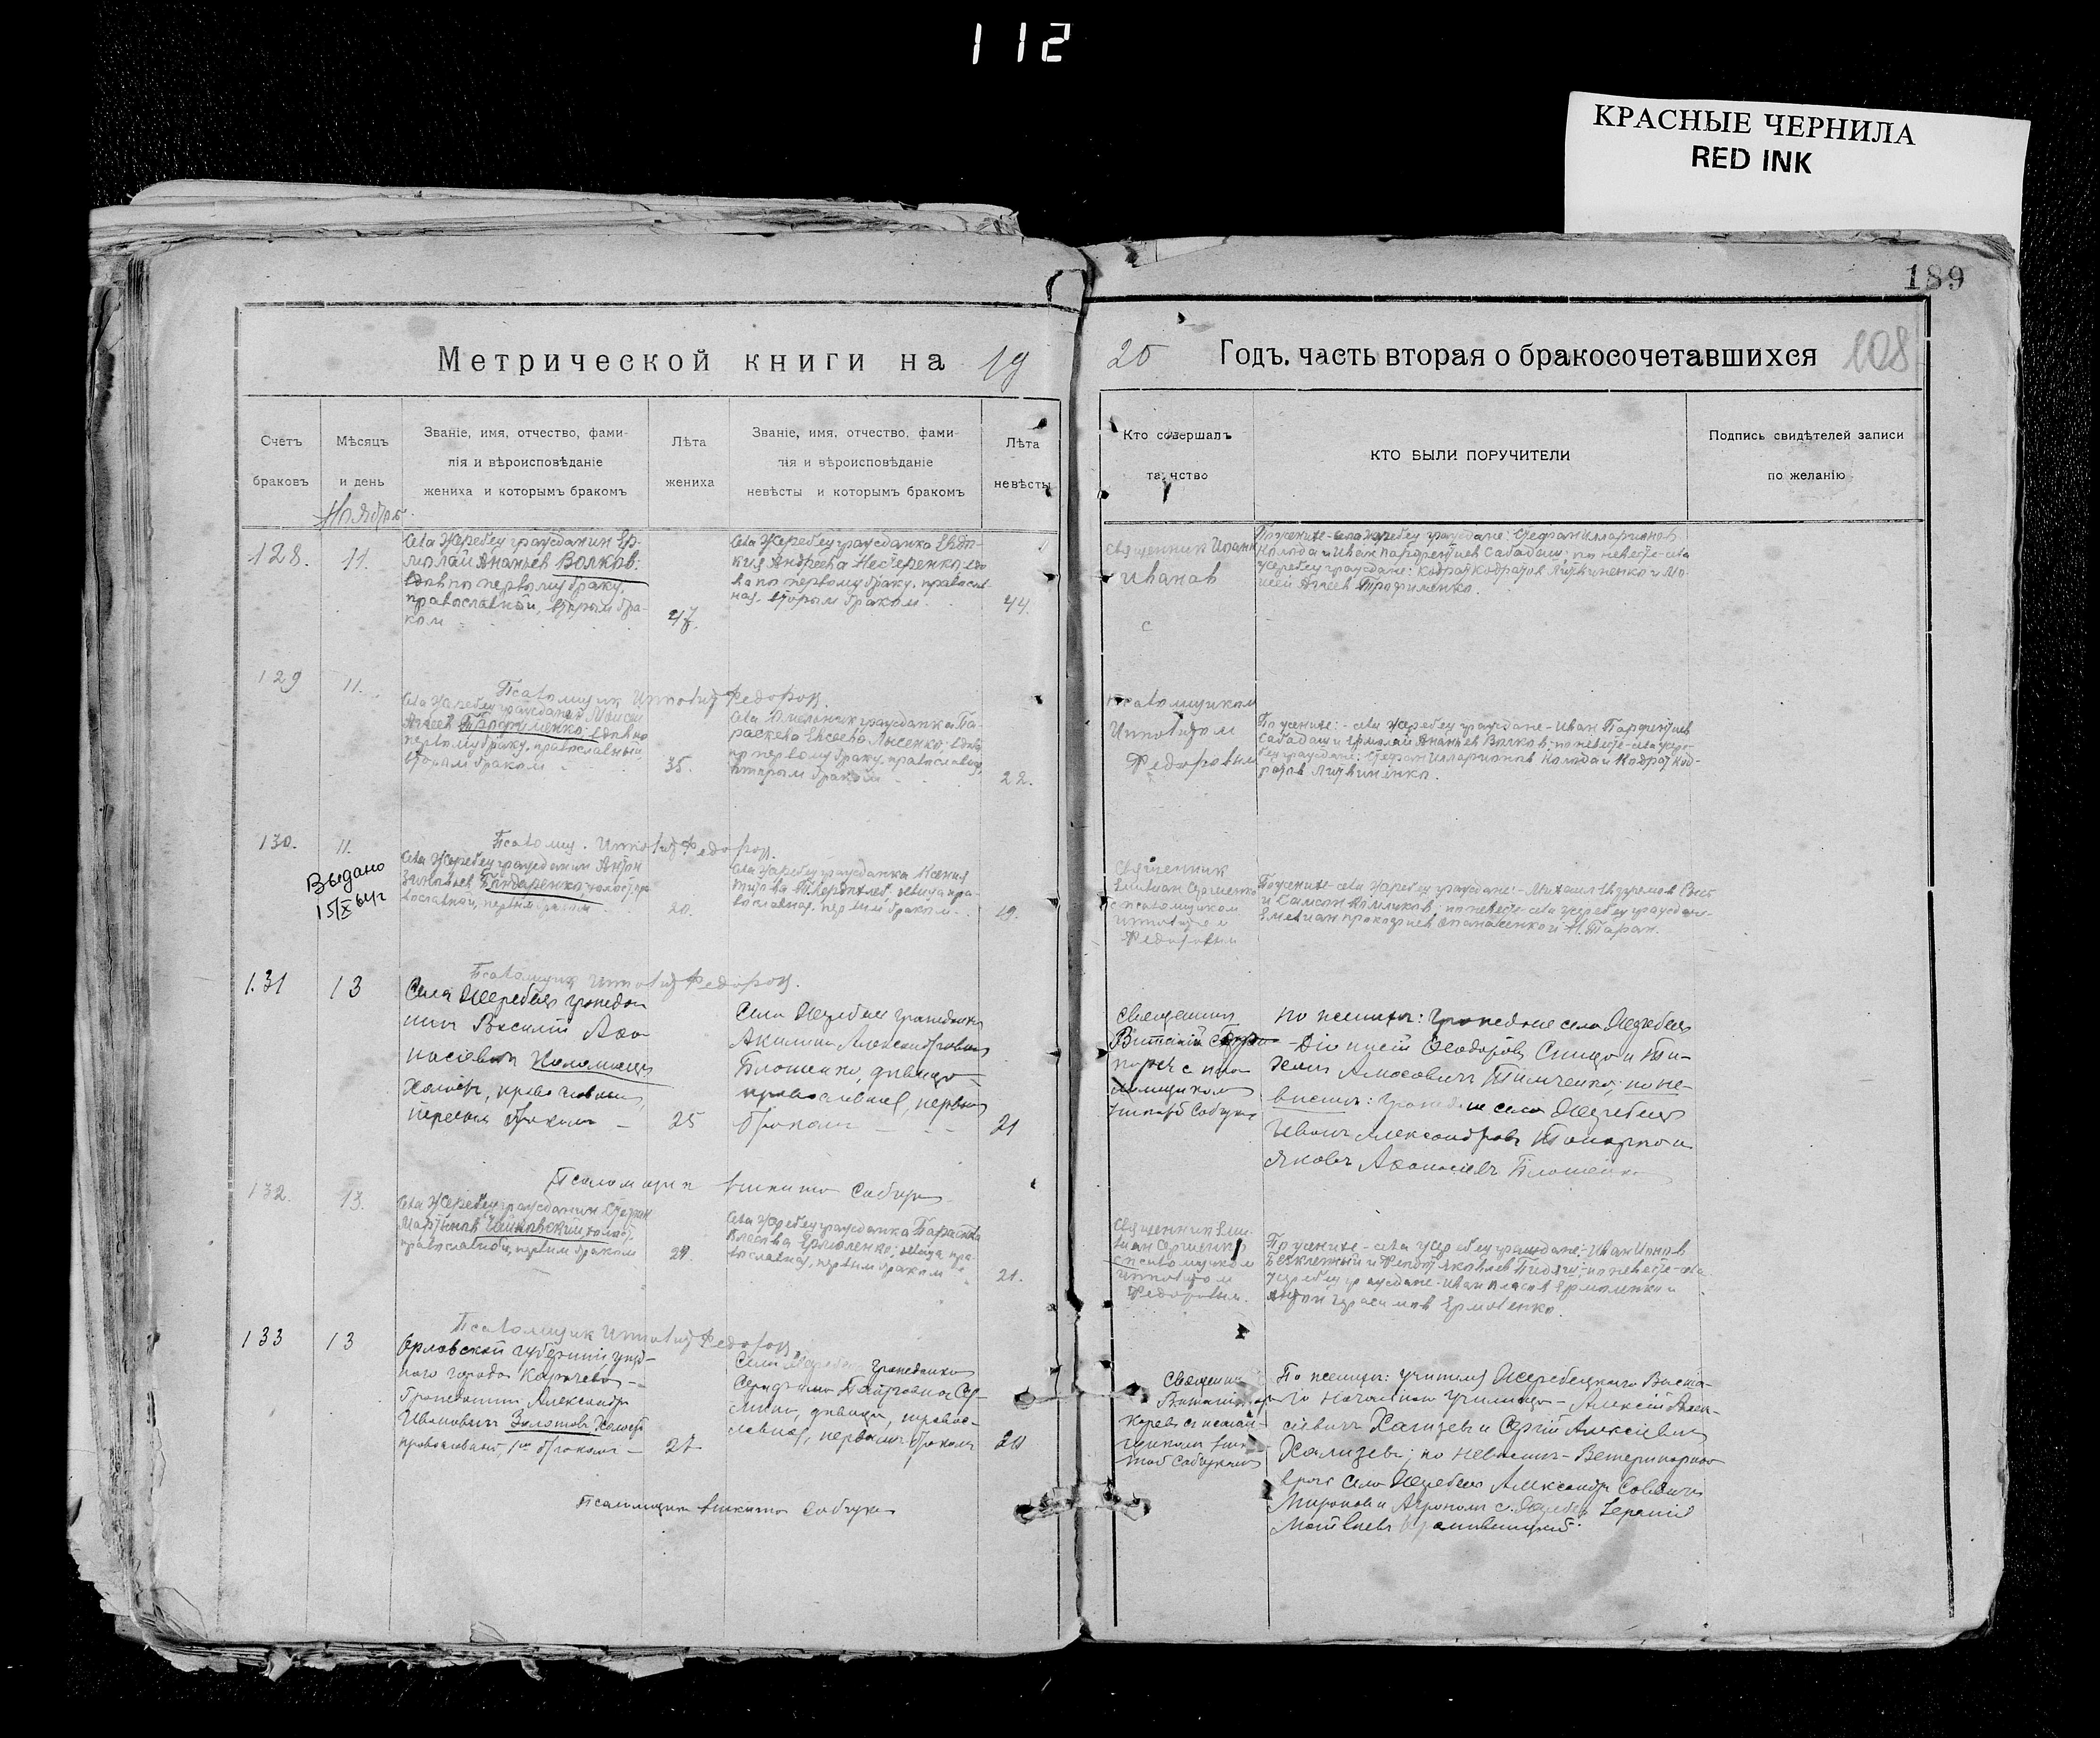 112
КРАСНЫЕ ЧЕРНИЛА
RED INK
189
Метрической книги на 19
20 Годъ. часть вторая о бракосочетавшихся 108
Счетъ
браковъ
Мѣсяцъ
и день
Званіе, имя, отчество, фами-
лія и вѣроисповѣданіе
жениха и которымъ бракомъ
Лѣта
жениха
Званіе, имя, отчество, фами-
лія и вѣроисповѣданіе
невѣсты и которымъ бракомъ
Лѣта
невѣсты
Кто совершалъ
таинство
КТО БЫЛИ ПОРУЧИТЕЛИ
Подпись свидѣтелей записи
по желанію
Ноября
128. 11.
села Жеребец гражданин Ер-
молай Ананьев Волков;
вдов по первому браку,
православной, вторым бра-
ком
47.
села Жеребец гражданка Евдо-
кия Андреева Нестеренко, вдо
ва по первому браку, православ
ная, вторым браком
44.
Священник Иоанн
Иванов
По женихе- села Жеребец граждане: Стефан Илларионов
Колода и Иван Парфентиев Сабадаш; по невесте- села
Жеребец граждане: Кодрат Кодратов Литвиненко и Мо-
исей Агеев Трофименко.
129 11.
Псаломщик Федоров.
села Жеребец гражданин Моисей
Агеев Трофименко; вдов по
первому браку, православный,
вторым браком
35.
села гражданка Па-
раскева Евсеева Лысенко; вдова
по первому браку, православная,
вторым браком
22.
псаломщиком
Федоровым
По женихе:- села Жеребец граждане- Иван Парфентиев
Сабадаш и Ермолай Ананьев Волков; по невесте- села Жере-
бец граждане: Стефан Илларионов Колода и Кодрат Код-
ратов Литвиненко.
130. 11.
Выдано
15/X 64г
Псаломщ. Федоров.
села Жеребец гражданин Антон
Бондаренко холост, пра
вославной, первым браком
20.
села Жеребец гражданка Ксения
Титова девица пра-
вославная, первым браком
19.
Священник
Емилиан Сергиенко
с псаломщиком
Федоровым
По женихе- села Жеребец граждане:- Михаил
и Самсон по невесте- села Жеребец граждане-
Емелиан Прокофиев Опанасенко и Н. Таран.
131 13
Псаломщик Федоров.
Села Жеребец граждан
нин Василий Афа
насіевич Коломиец
Холост, православный,
первым браком
25
Села Жеребец гражданка
Акилина Александровна
Блошенко, девица
православная, первым
браком
21
Священник
Виталій
с псаломщиком
Никитой Собчук
по женихѣ: граждане села Жеребец
Діонисій Феодоров и Ти-
Амосович Тимченко; по не-
вестѣ: граждане села Жеребец
Иван Александров и
Яковъ Афанасіевъ Блошенко
132. 13.
Псаломщик Никита Собчук
села Жеребец гражданин Стефан
Мартынов холост,
православной, первым браком
29.
села Жеребец гражданка Параскева
Власова Ермоленко; девица пра
вославная, первым браком
21.
Священник Еми-
лиан Сергиенко
с псаломщиком
Федоровым.
По женихе- села Жеребец граждане:- Иван Ионов
и Федот Яковлев по невесте- села
Жеребец граждане- Иван Власов Ермоленко и
Антон Герасимов Ермоленко.
133 13
Псаломщик Федоров
Орловской губерніи уезд-
ного города Карачева
Гражданин Александр
Иванович Золотов Холост
православный, 1м браком
27
Села Жеребец гражданка
Серафима
девица, православ-
ная, первым браком
20
Священник
Виталій
с псалом-
щиком Ники-
той Собчуком
По женихѣ: учителя Жеребецкого Высше-
го Начального училища- Алексій Алек-
сіевич и Сергій Алексіевич
по невестѣ- Ветеринарный
врач села Жеребец Александр
Миронов и Агроном с. Жеребец
Матвѣевъ
Псаломщик Никита Собчук